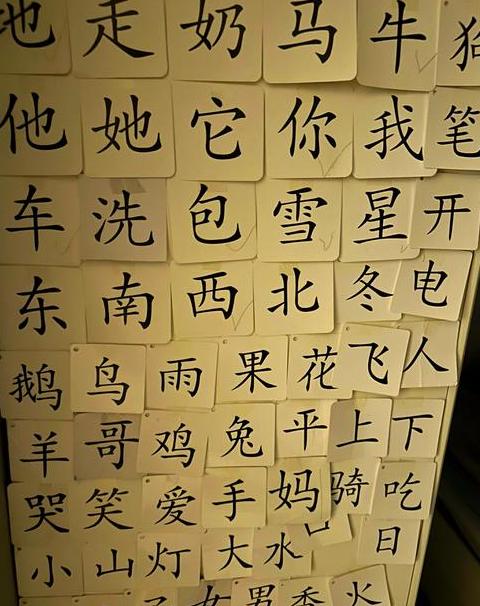 地 走 奶 马 牛 狗
他 她 它 你 我 笔
车 洗 包 雪 星 开
东 南 西 北 冬 电
鹅 鸟 雨 果 花 飞 人
羊 哥 鸡 兔 平 上 下
哭 笑 爱 手 妈 骑 吃
小 山 灯 大 水 日
女 男 香 火